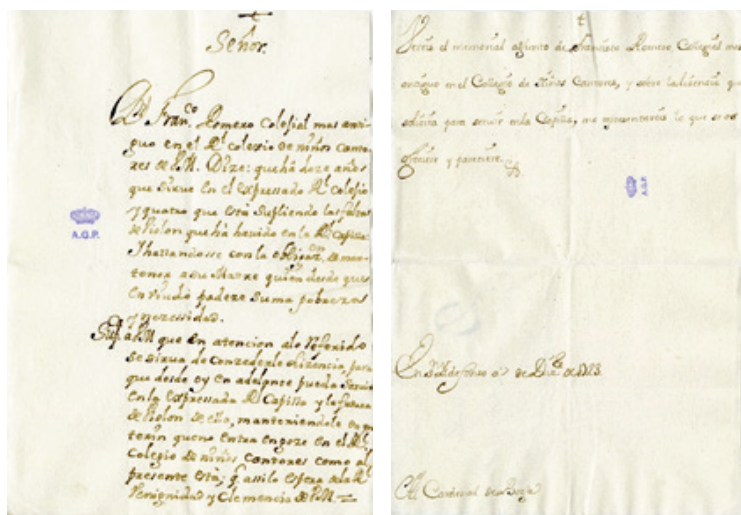 Señor.
Dn. Franco. Romero Colejial mas anti-
guo en el Rl. colexio de niños Canto-
res de V.M. Dize: que ha doze años
que sirue en el expressado Rl. Colejio
y quatro que està supliendo las faltas
de Violon que há hauido en la Rl. Capilla
Y hallandosse con la obligazn. de man-
tener a su Madre quien desde que
enviudó padeze suma pobreza
y nezessidad.
Supca. a VM que en atencion alo referido
se sirua de Conzederle lizencia, para
que desde oy en adelante pueda seruir
en la expressada Rl. Capilla y la futura
de Violon de ello, manteniendole en yn
terin que no entra en goze en el Rl.
Colegio de niños Cantores como al
presente està; q. assilo espera dela Rl.
Venignidad y Clemencia de V.M.
A.G.P.
Vereis el memorial adjunto de Francisco Romero, Collegial mas
antiguo en el Collegio de Niños Cantores, y sobre la lizencia que
solicita para seruir en la Capilla, me representareis lo que se os
ofreciere y pareciere.
A.G.P.
En Sn. Ildefonso de Dize. de 1723.
Al Cardenal de Borja